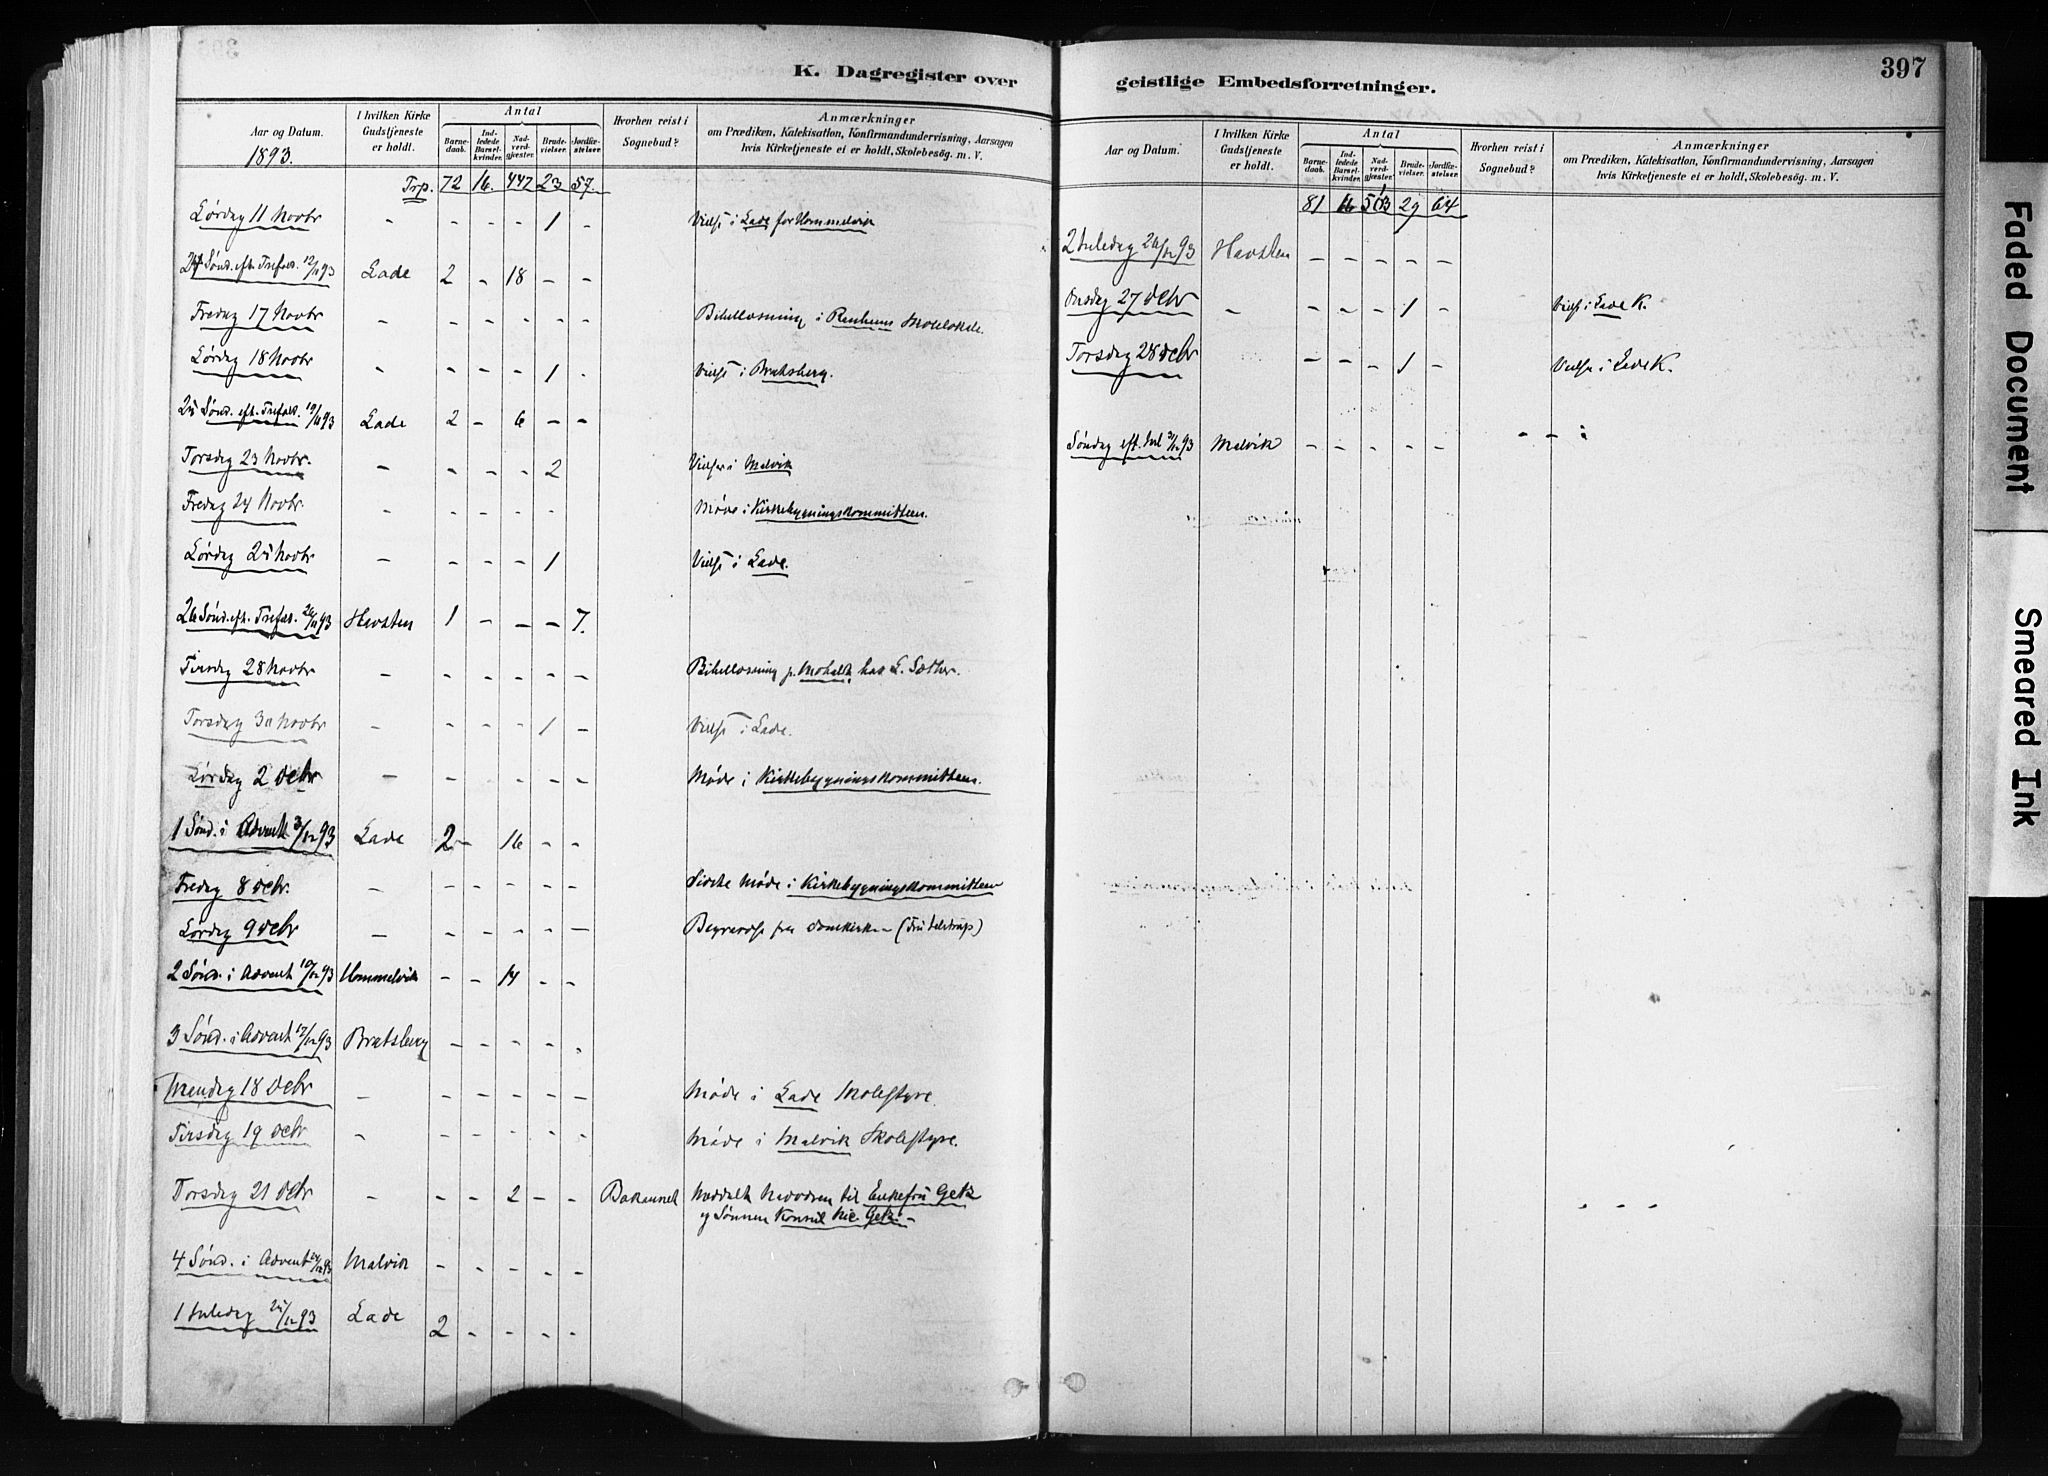 K. Dagregister over
Aar og Datum.
1893.
I hvilken Kirke Gudstjeneste er holdt.
Antal
Barnedaab.
Indledede Barselkvinder.
Nadverdgjæster.
Brudevielser.
Jordfæstelser.
Hvorhen reist i Sognebud?
Anmærkninger
om Prædiken, Katekisation, Konfirmandundervisning, Aarsagen
hvis Kirketjeneste ei er holdt, Skolebesög. m. V.
Trp. 72 16. 447 23 57.
Lørdag 11 Novbr - - - - 1 - Vielse i Lade for Hommelvik
24 Sønd. eft. Trefol. 12/11 93 Lade 2 - 18 - -
Fredag 17 Novbr - - - - - - Bibellæsning i Skolelokale.
Lørdag 18 Novbr - - - - 1 - Vielse i Bratsberg.
25 Sønd. eft. Trefol. 19/11 93 Lade 2 - 6 - -
Torsdag 23 Novbr. - - - - 2 Vielser i Malvik
Fredag 24 Novbr. - - - - - Møde i Kirkebygningskommitteen.
Lørdag 25 Novbr - - - - 1 Vielse i Lade.
26 Sønd. eft. Trefol. 26/11 93 Havsten 1 - - - 7.
Tirsdag 28 Novbr - - - - - - Bibellæsning p. hos L. Sæther.
Torsdag 30 Novbr - - - - 1 - Vielse i Lade.
Lørdag 2 Decbr - - - - - - Møde i Kirkebygningskommitteen.
1 Sønd. i Advent 3/12 93 Lade 2 - 16 - -
Fredag 8 Decbr. - - - - - - Sidste Møde i Kirkebygningskommitteen
Lørdag 9 Decbr - - - - - - Begravelse fra Domkirken
2 Sønd. i Advent 10/12 93 Hommelvik - - 14 - -
3 Sønd. i Advent 17/12 93 Bratsberg - - - - -
Mandag 18 Decbr - - - - - - Møde i Lade Skolestyre.
Tirsdag 19 Decbr - - - - - - Møde i Malvik Skolestyre.
Torsdag 21 Decbr - - - 2 - - Bakaunet Meddelt Nadveren til Enkefru Getz
og Sønnen Konsul Nic. Getz.
4 Sønd. i Advent 24/12 93 Malvik - - - - -
1 Juledag 25/12 93 Lade 2 - - - -
geistlige Embedsforretninger.
397
Aar og Datum.
I hvilken Kirke Gudstjeneste er holdt.
Antal
Barnedaab.
Indledede Barselkvinder.
Nadverdgjæster.
Brudevielser.
Jordfæstelser.
Hvorhen reist i Sognebud?
Anmærkninger
om Prædiken, Katekisation, Konfirmandundervisning, Aarsagen
hvis Kirketjeneste ei er holdt, Skolebesög. m. V.
81 16 503 29 64
2 Juledag 26/12 93 Havsten - - - - -
Onsdag 27 Decbr - - - - 1 - Vielse i Lade K.
Torsdag 28 Decbr - - - 1 - Vielse i Lade K.
Søndag eft. Jul 31/12 93 Malvik - - - - -
Faded Document
Smeared Ink